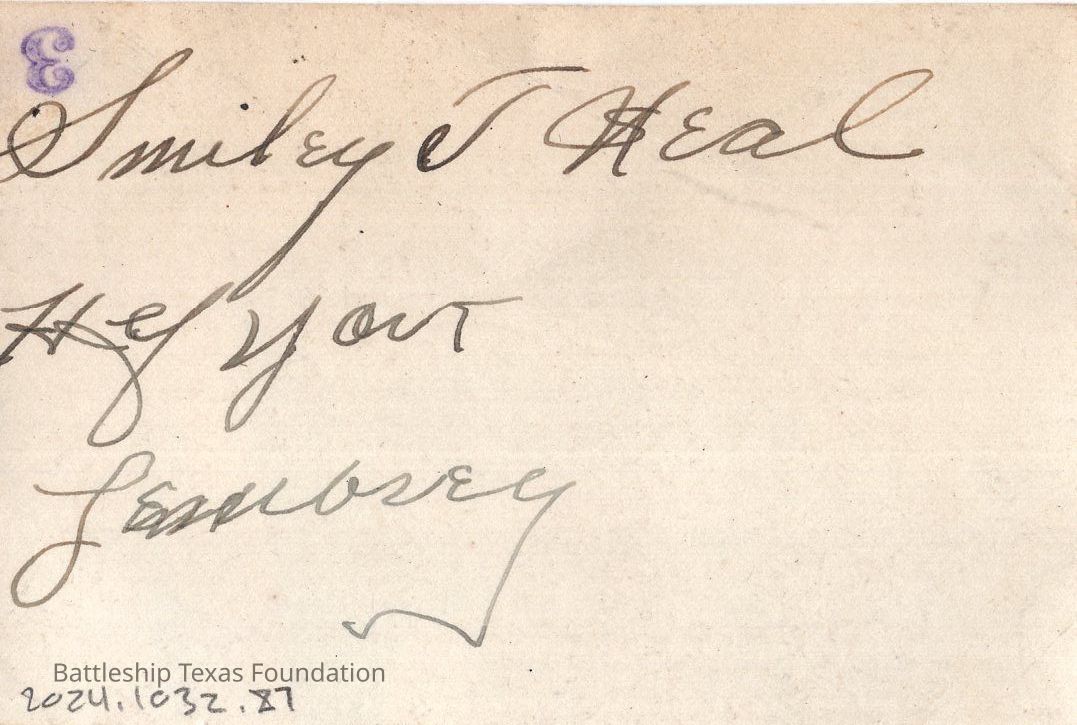 3
Smiley J Heal
Hey yout
Battleship Texas Foundation
2024.1032.87